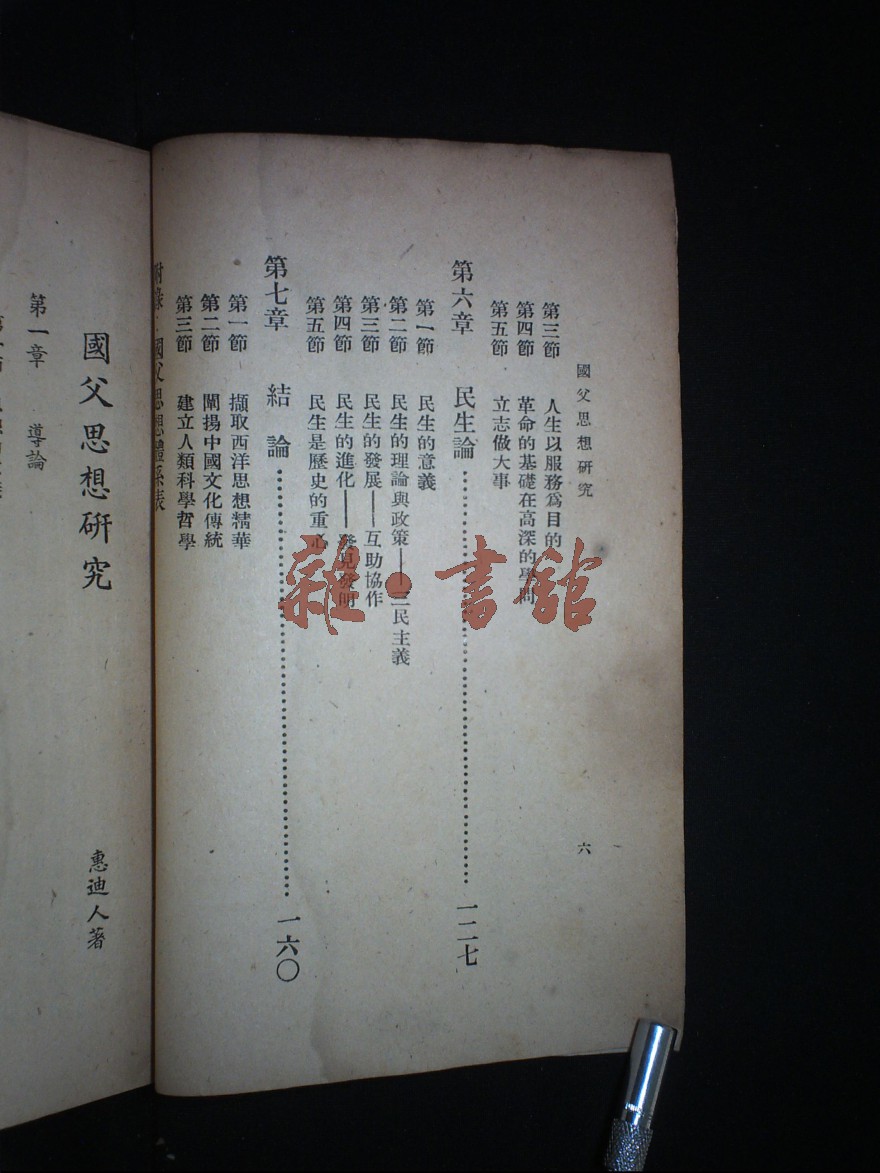 國父思想研究
六
第三節 人生以服務爲目的
第四節 革命的基礎在高深的學問
第五節 立志做大事
第六章 民生論…………一二七
第一節 民生的意義
第二節 民生的理論與政策——三民主義
第三節 民生的發展——互助協作
第四節 民生的進化——發見發明
第五節 民生是歷史的重心
第七章 結論…………一六〇
第一節 擷取西洋思想精華
第二節 闡揚中國文化傳統
第三節 建立人類科學哲學
附錄：國父思想體系表
國父思想研究
惠迪人著
第一章 導論
雜·書館